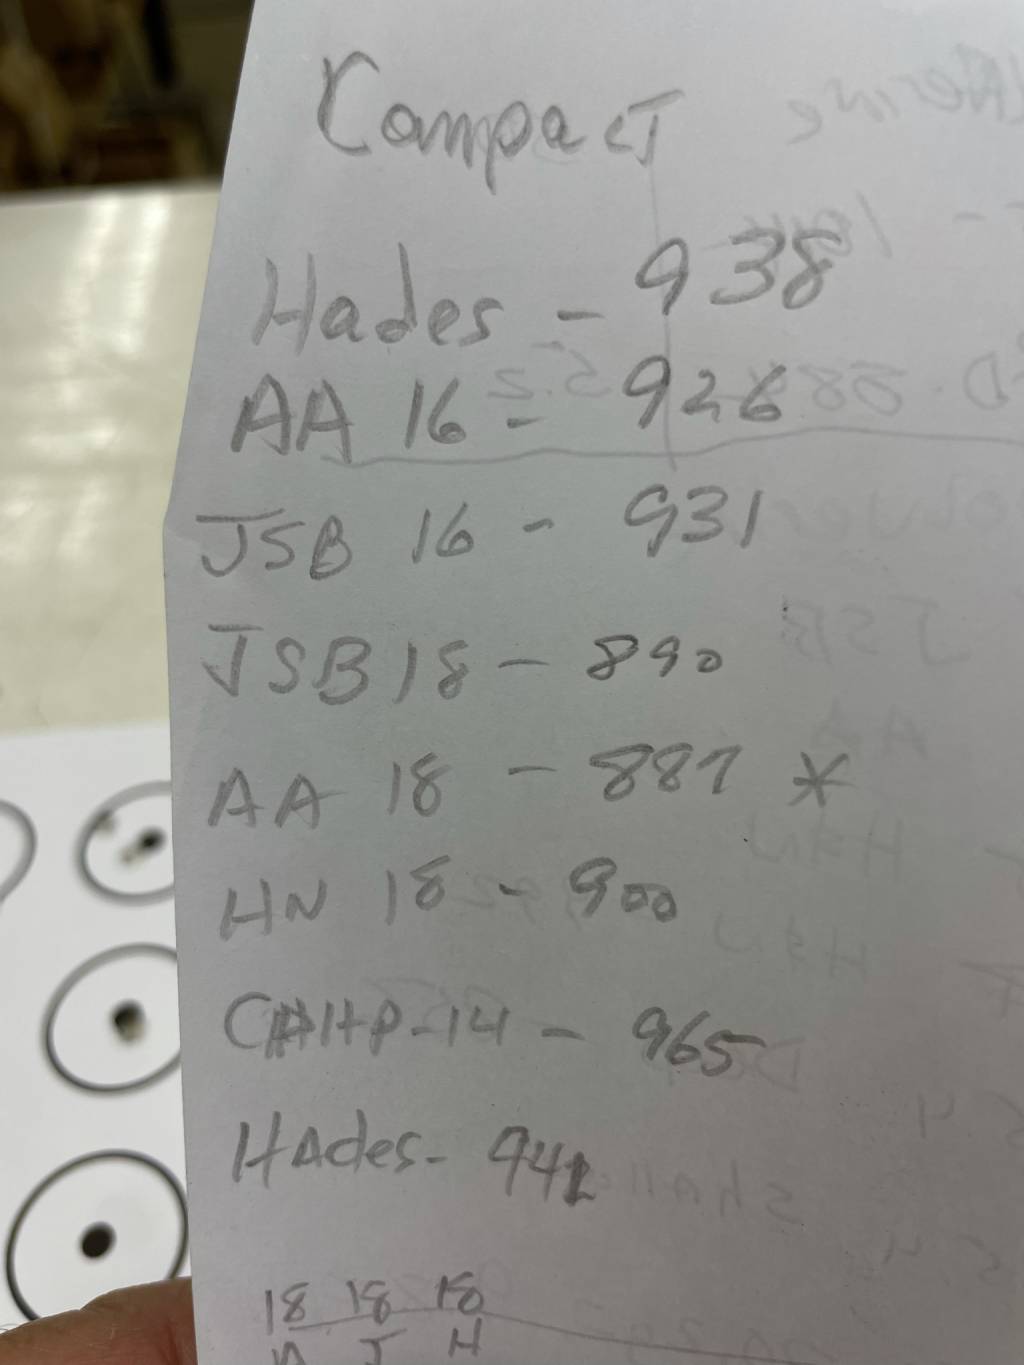 Compact
Hades - 938
AA 16 - 926
JSB 16 - 931
JSB 18 - 890
AA 18 - 887 *
HN 18 - 900
HP-14 - 965
HAdes - 941
18 18 18
A J H